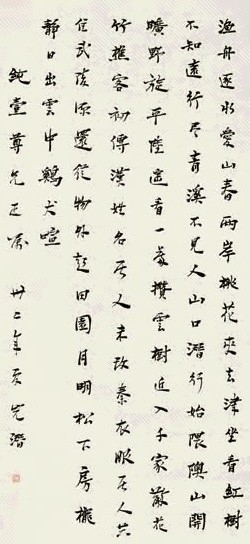 漁舟逐水愛山春兩岸桃花夾去津坐看紅樹
不知遠行盡青溪不見人山口潛行始隈隩山開
曠野旋平陸遙看一處攢雲樹近入千家散花
竹樵客初傳漢姓名居人未改秦衣服居人共
住武陵源還從物外起田園月明松下房櫳
靜日出雲中鷄犬喧
鈍堂尊兄正屬 卅二年夏 光潛